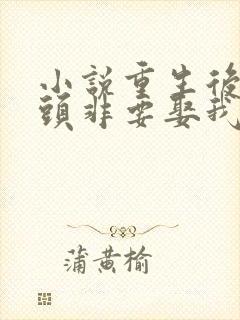 小說重生後
頭非要娶我
蒲黄榆